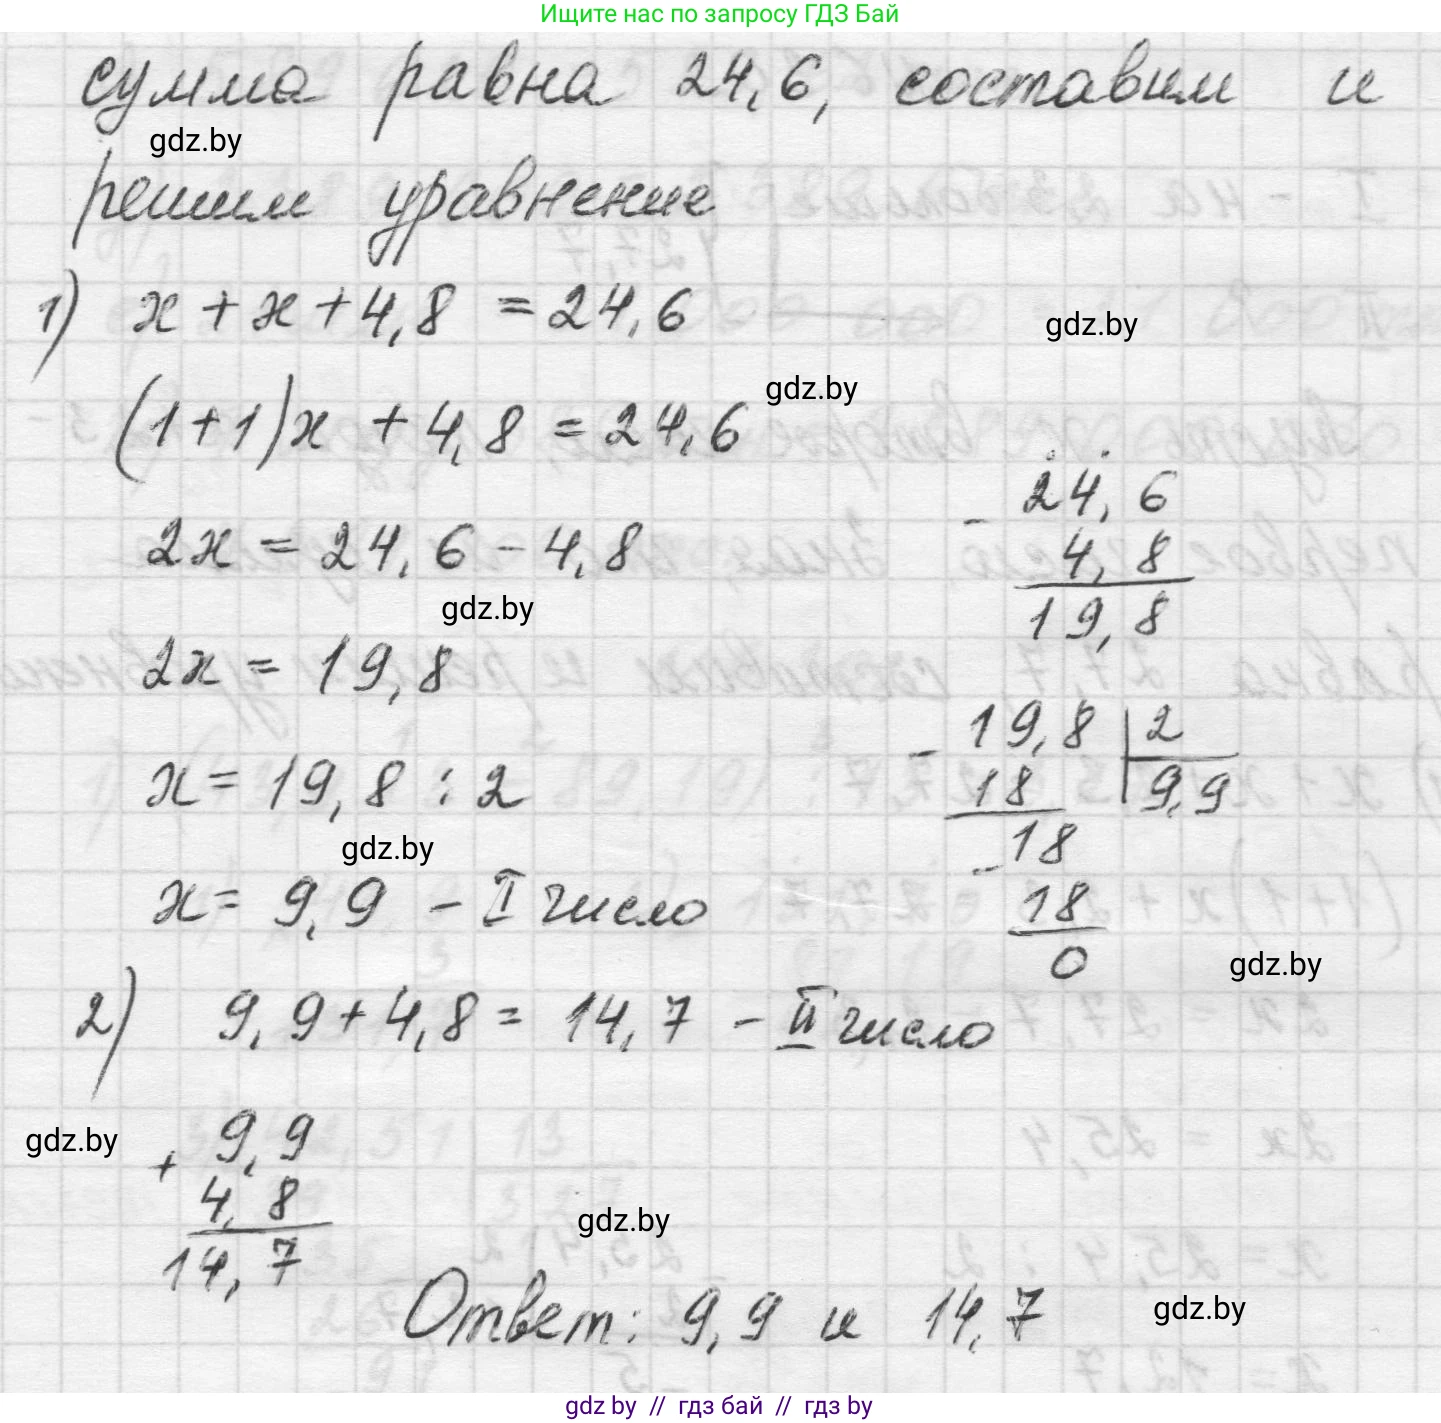 Ищите нас по запросу ГДЗ Бай
сумма равна 24,6, составим и
gdz.by
решим уравнение
1) x + x + 4,8 = 24,6
gdz.by
gdz.by
(1+1)x + 4,8 = 24,6
- 24,6
4,8
19,8
2x = 24,6 - 4,8
gdz.by
2x = 19,8
- 19,8 | 2
18 9,9
- 18
18
0
x = 19,8 : 2
gdz.by
x = 9,9 - I число
gdz.by
2) 9,9 + 4,8 = 14,7 - II число
gdz.by
+ 9,9
4,8
14,7
gdz.by
Ответ: 9,9 и 14,7
gdz.by
gdz.by // гдз бай // гдз by